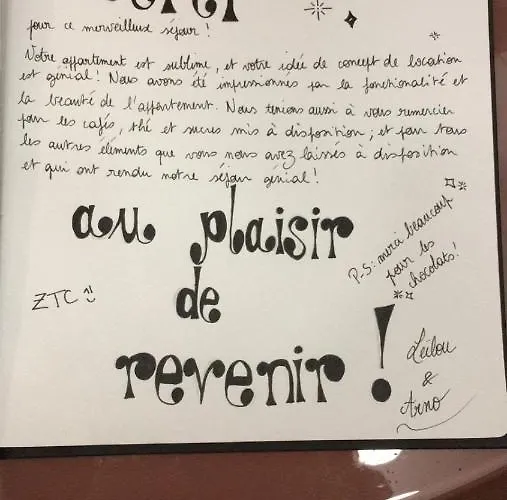 pour ce merveilleux séjour !
Votre appartement est sublime, et votre idée de concept de location
est génial ! Nous avons été impressionnés par la fonctionalité et
la beauté de l'appartement. Nous tenions aussi à vous remercier
pour les cafés, thé et sucres mis à disposition ; et pour tous
les autres éléments que vous nous avez laissés à disposition
et qui ont rendu notre séjour génial !
au plaisir
de
revenir !
P-S : merci beaucoup
pour les
chocolats !
ZTC
Leïlou
&
Arno